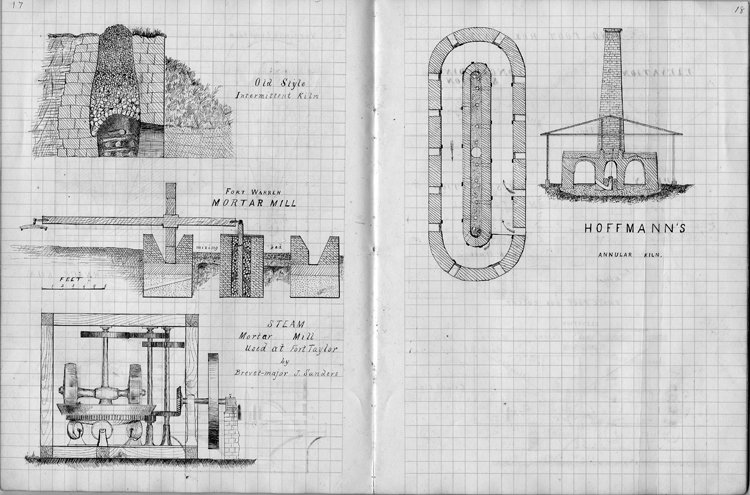 17
Old Style
Intermittent Kiln
FORT WARREN
MORTAR MILL
mixing bed
FEET
STEAM
Mortar Mill
Used at Fort Taylor
by
Brevet-major J. Sanders
18
HOFFMANN'S
ANNULAR KILN.